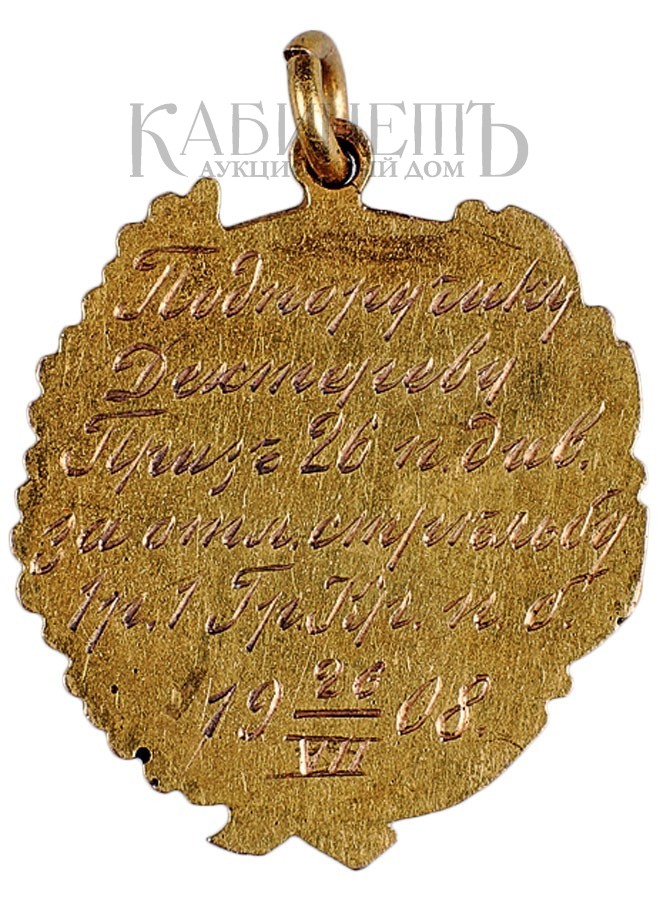 КАБИНЕТЪ
АУКЦИОННЫЙ ДОМ
Подпоручику
Дехтереву
Призъ 26 п. див.
за отл. стрѣльбу
1р. 1 Гр. Кр. п. б.
19 26/VII 08.